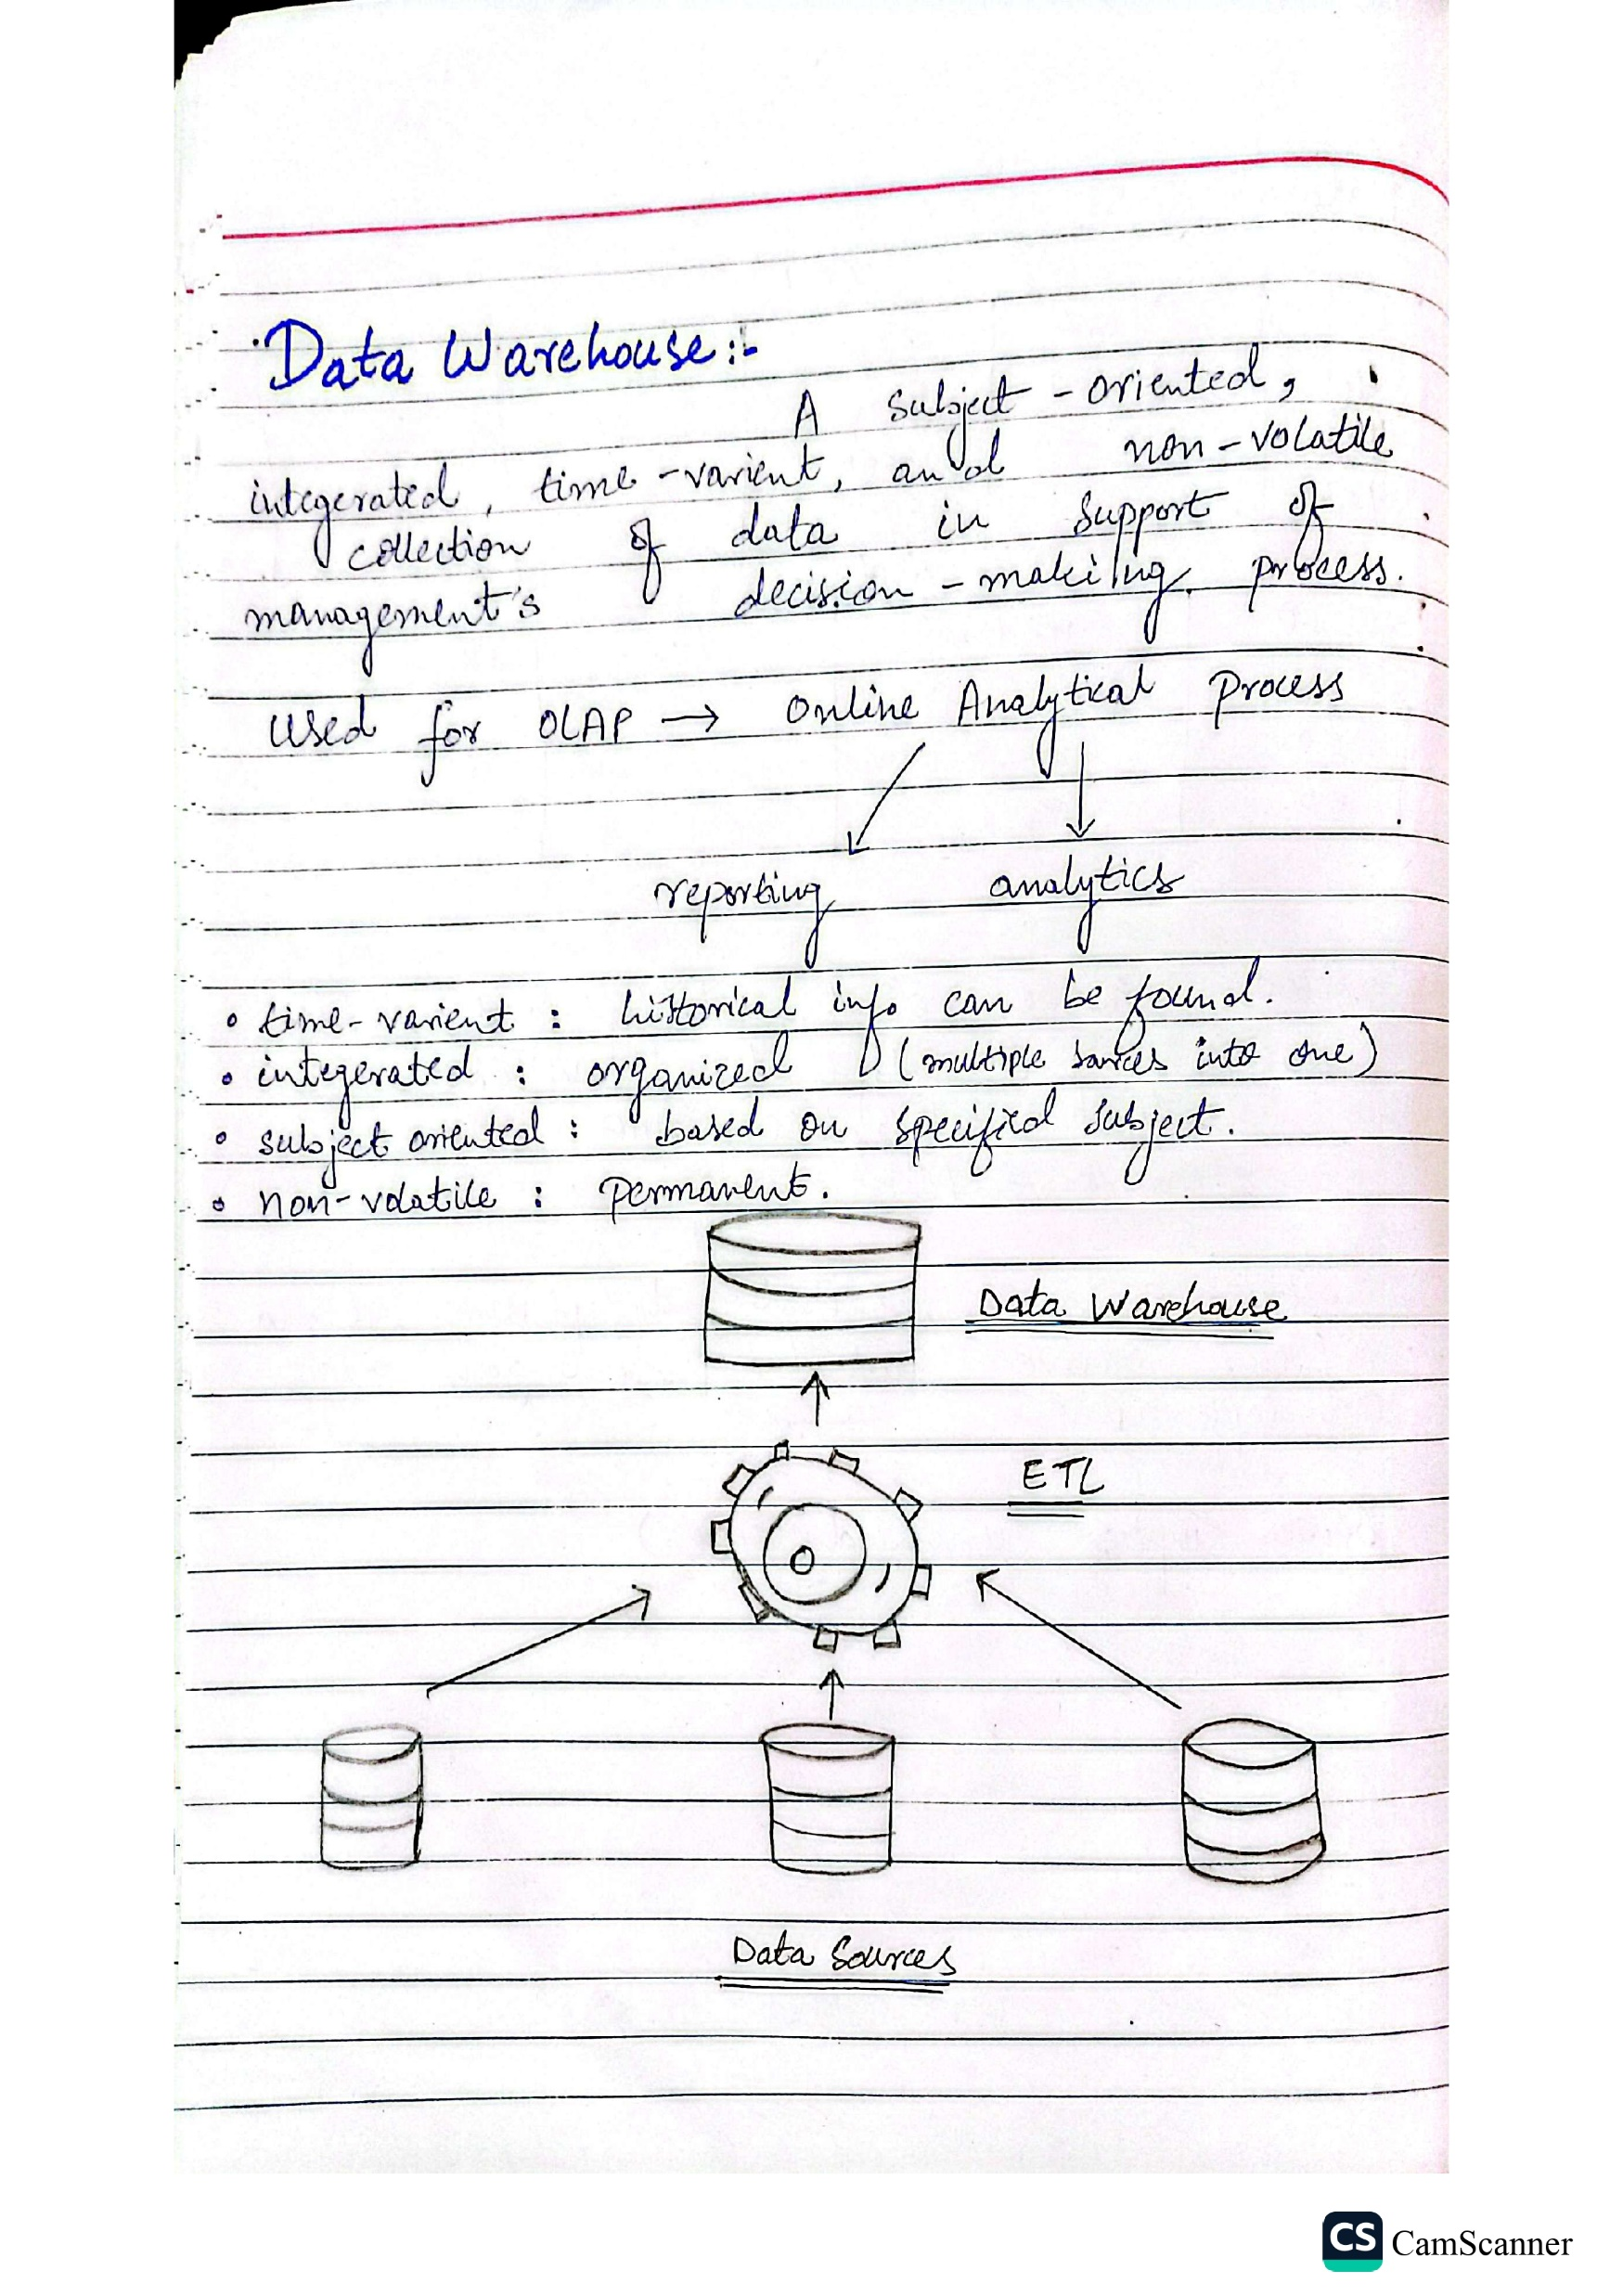 Data Warehouse:-
A subject-oriented,
integerated, time-varient, and non-volatile
collection of data in support of
management's decision-making process.
Used for OLAP → Online Analytical Process
reporting analytics
• time-varient : historical info can be found.
• integerated : organized (multiple sources into one)
• subject oriented : based on specified subject.
• non-volatile : permanent.
Data Warehouse
ETL
Data Sources
CS CamScanner